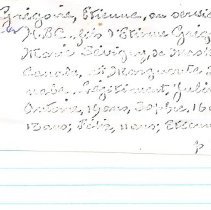 Grégoire, Etienne, au service
H.B.C., fils d'Etienne Grég
Marie Sévigny, de Mas
Canada, et Marguerite
Légitiment, Jul
Antoine, 19 ans, Sophie, 16
13 ans; 11 ans; Etienne
p